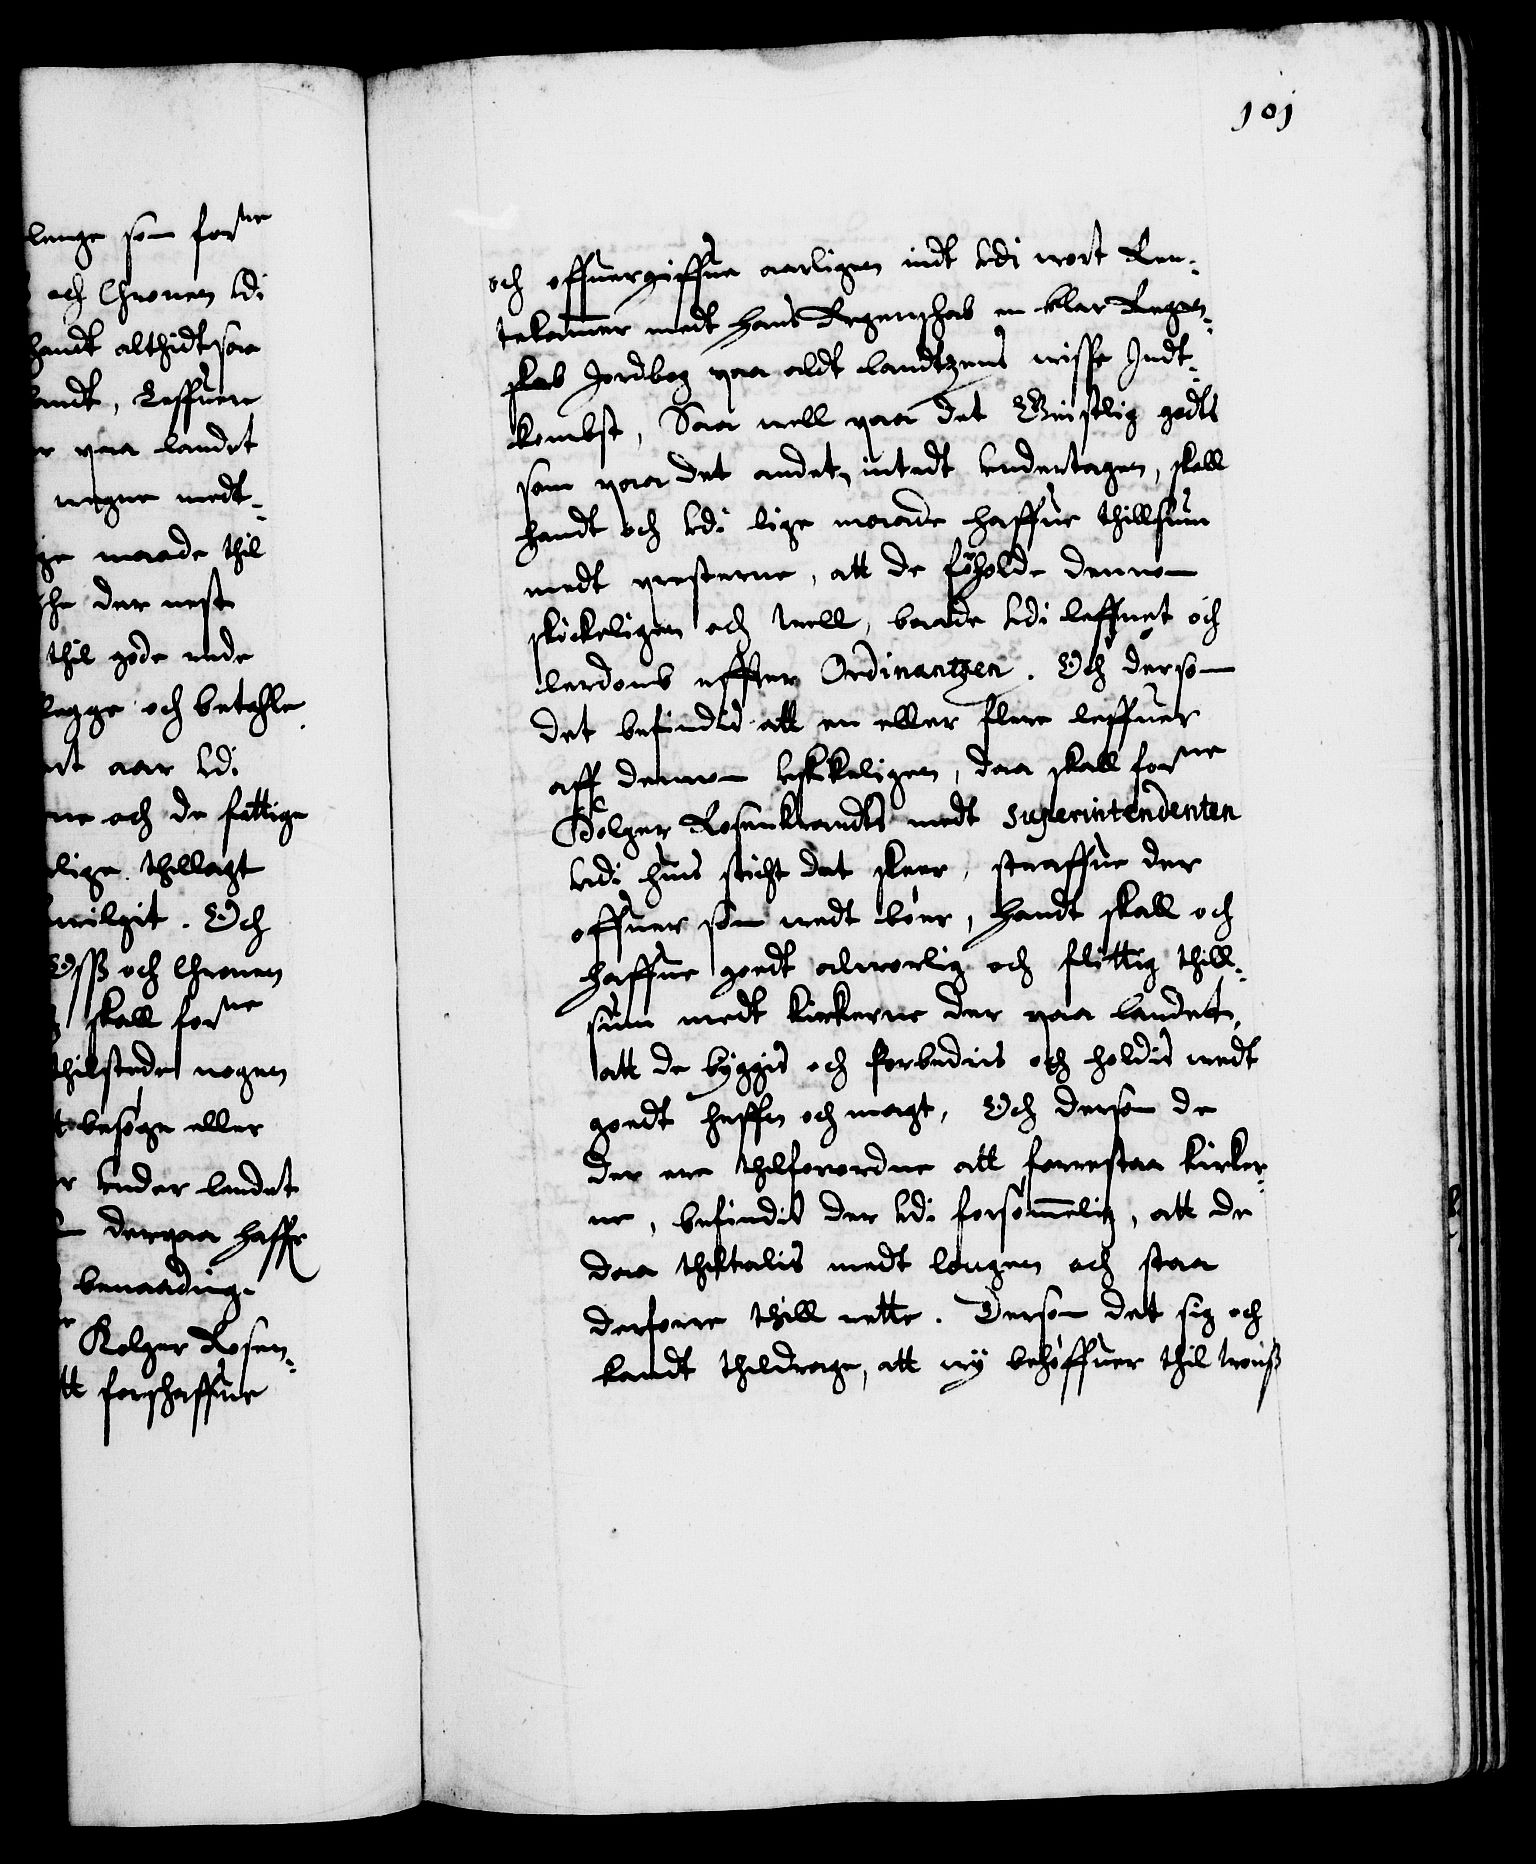 lenge som forne
och Chronen vdi
handt althidt saa
landt, Leffuere
er paa landet
negne medt-
ge maade thil
che der nest
thil gode rede
legge och betahle
rt aar vdi
ne och de fattige
lige thillagt
wilgit. Och
Oss och Chronen
skall forne
thilstede nogen
t besøge eller
r vnder landet
derpaa haffr
benaading.
Holger Rosen-
tt forschaffue
101
och offuergiffue aarligen indt vdi wort Ren-
tekammer medt hans Regenschab en klar Regen-
skab Jordbog paa aldt landtzens wisse Indt-
kombst, Saa well paa det Geistlig godts
som paa det andet, intedt vndertagen, skall
handt och vdi lige maade haffue thillsiun
medt presterne, att de forholde dennom
skickeligen och well, baade vdi leffnet och
lerdomb effter Ordinantzen. Och dersom
det befindis att en eller flere leffuer
aff dennom vskickeligen, daa skall forne
Holger Rosenkrandts medt Superintendenten
vdi huis sticht det skeer, straffue der
offuer som wedt bøer, handt skall och
haffue goedt alworlig och flittig thill-
siun medt kirkerne der paa landet,
att de byggis och forbedris och holdis wedt
goedt heffn och magt, Och dersom de
der ere thilforordne att forrestaa kirker-
ne, befindis der vdi forsømmelig, att de
daa thiltalis medt lougen och staa
derforre thill rette. Dersom det sig och
kandt thildrage, att wy behøffuer thil wort